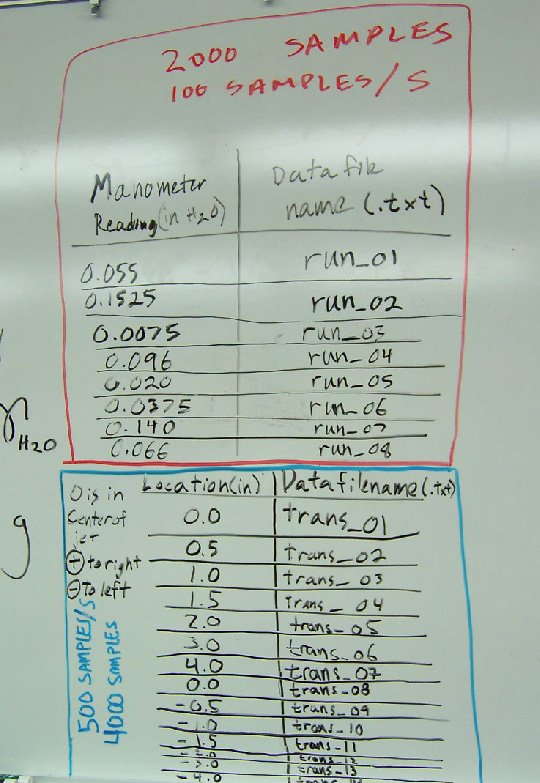 2000 SAMPLES
100 SAMPLES/S
Manometer Reading (in H2O) Datafile name (.txt)
0.055 run_01
0.1525 run_02
0.0075 run_03
0.096 run_04
0.020 run_05
0.0375 run_06
0.140 run_07
0.066 run_08
H2O
g
0 is in
Center of
jet
(+) to right
(-) To left
500 SAMPLES/S
4000 SAMPLES
Location(in) Datafilename(.txt)
0.0 trans_01
0.5 trans_02
1.0 trans_03
1.5 trans_04
2.0 trans_05
3.0 trans_06
4.0 trans_07
0.0 trans_08
-0.5 trans_09
-1.0 trans_10
-1.5 trans_11
-2.0 trans_12
-3.0 trans_13
-4.0